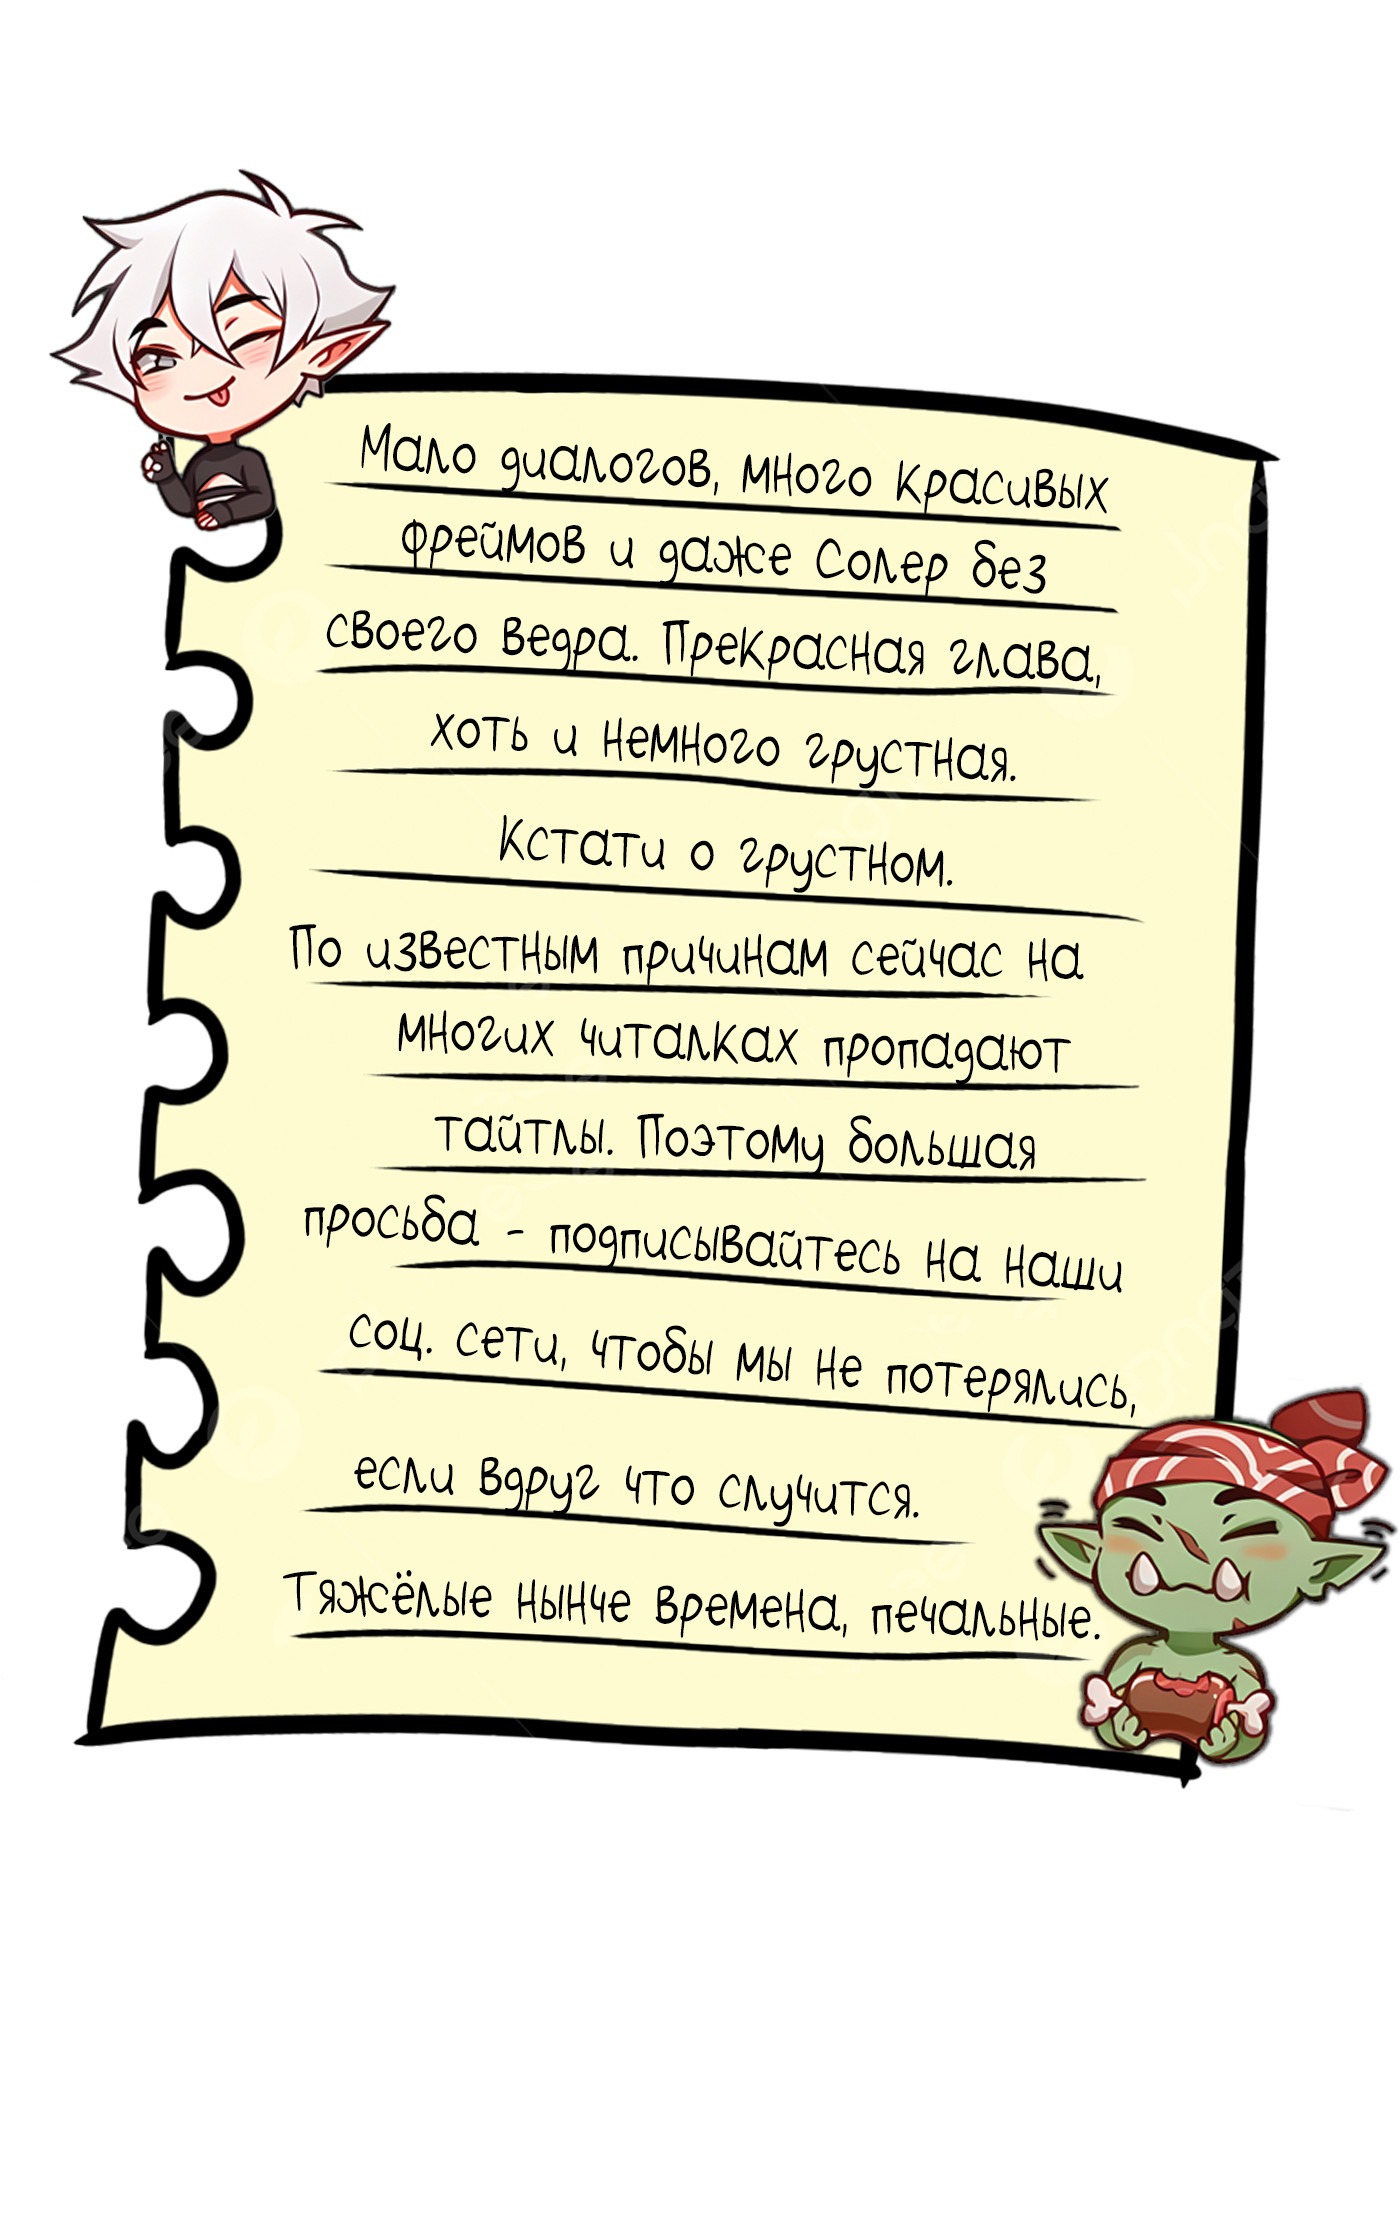 Мало диалогов, много красивых
фреймов и даже Солер без
своего ведра. Прекрасная глава,
хоть и немного грустная.
Кстати о грустном.
По известным причинам сейчас на
многих читалках пропадают
тайтлы. Поэтому большая
просьба - подписывайтесь на наши
соц. сети, чтобы мы не потерялись,
если вдруг что случится.
Тяжёлые нынче времена, печальные.